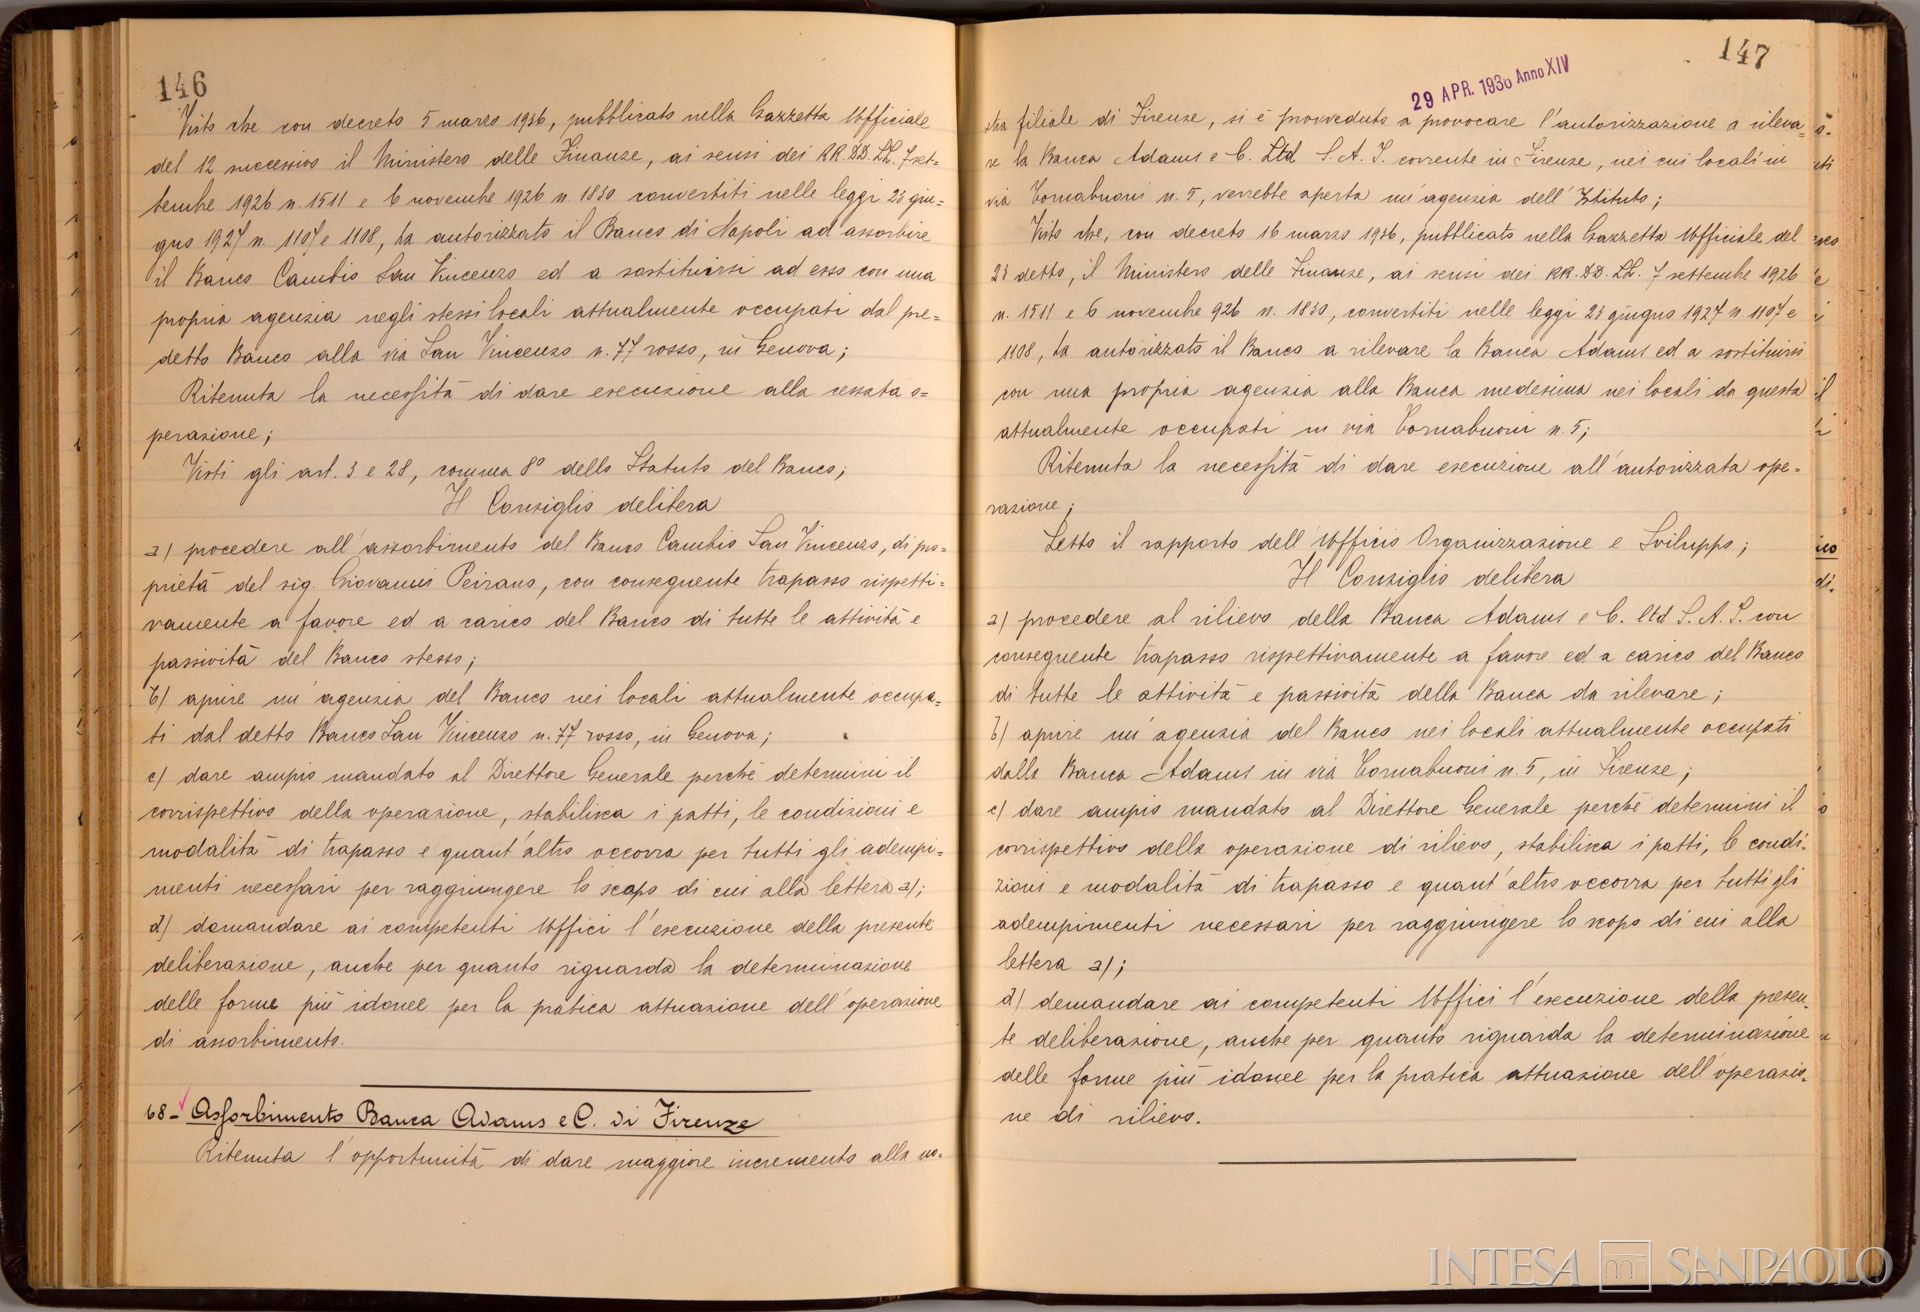 146
Visto che con decreto 5 marzo 1936, pubblicato nella Gazzetta Ufficiale
del 12 successivo il Ministero delle Finanze, ai sensi dei RR.DD.LL. 7 set-
tembre 1926 n. 1511 e 6 novembre 1926 n. 1830 convertiti nelle leggi 23 giu-
gno 1927 n. 1107 e 1108, ha autorizzato il Banco di Napoli ad assorbire
il Banco Cambio San Vincenzo ed a sostituirsi ad esso con una
propria agenzia negli stessi locali attualmente occupati dal pre-
detto Banco alla via San Vincenzo n. 77 rosso, in Genova;
Ritenuta la necessità di dare esecuzione alla cessata o-
perazione;
Visti gli art. 3 e 28, comma 8° dello Statuto del Banco;
Il Consiglio delibera
a) procedere all'assorbimento del Banco Cambio San Vincenzo, di pro-
prietà del sig. Giovanni Peirano, con conseguente trapasso rispetti-
vamente a favore ed a carico del Banco di tutte le attività e
passività del Banco stesso;
b) aprire un'agenzia del Banco nei locali attualmente occupa-
ti dal detto Banco San Vincenzo n. 77 rosso, in Genova;
c) dare ampio mandato al Direttore Generale perchè determini il
corrispettivo della operazione, stabilisca i patti, le condizioni e
modalità di trapasso e quant'altro occorra per tutti gli adempi-
menti necessari per raggiungere lo scopo di cui alla lettera a);
d) domandare ai competenti Uffici l'esecuzione della presente
deliberazione, anche per quanto riguarda la determinazione
delle forme più idonee per la pratica attuazione dell'operazione
di assorbimento.
68- Assorbimento Banca Adams e C. di Firenze
Ritenuta l'opportunità di dare maggiore incremento alla no-
147
29 APR. 1936 Anno XIV
stra filiale di Firenze, si è provveduto a provocare l'autorizzazione a rileva-
re la Banca Adams e C. Ltd S. A. I. corrente in Firenze, nei cui locali in
via Tornabuoni n. 5, verrebbe aperta un'agenzia dell'Istituto;
Visto che, con decreto 16 marzo 1936, pubblicato nella Gazzetta Ufficiale del
23 detto, il Ministero delle Finanze, ai sensi dei RR.DD.LL. 7 settembre 1926
n. 1511 e 6 novembre 926 n. 1830, convertiti nelle leggi 23 giugno 1927 n. 1107 e
1108, ha autorizzato il Banco a rilevare la Banca Adams ed a sostituirsi
con una propria agenzia alla Banca medesima nei locali da questa
attualmente occupati in via Tornabuoni n. 5;
Ritenuta la necessità di dare esecuzione all'autorizzata ope-
razione;
Letto il rapporto dell'Ufficio Organizzazione e Sviluppo;
Il Consiglio delibera
a) procedere al rilievo della Banca Adams e C. Ltd S. A. I. con
conseguente trapasso rispettivamente a favore ed a carico del Banco
di tutte le attività e passività della Banca da rilevare;
b) aprire un'agenzia del Banco nei locali attualmente occupati
dalla Banca Adams in via Tornabuoni n. 5, in Firenze;
c) dare ampio mandato al Direttore Generale perchè determini il
corrispettivo della operazione di rilievo, stabilisca i patti, le condi-
zioni e modalità di trapasso e quant'altro occorra per tutti gli
adempimenti necessari per raggiungere lo scopo di cui alla
lettera a);
d) demandare ai competenti Uffici l'esecuzione della presen-
te deliberazione, anche per quanto riguarda la determinazione
delle forme più idonee per la pratica attuazione dell'operazio-
ne di rilievo.
INTESA SANPAOLO